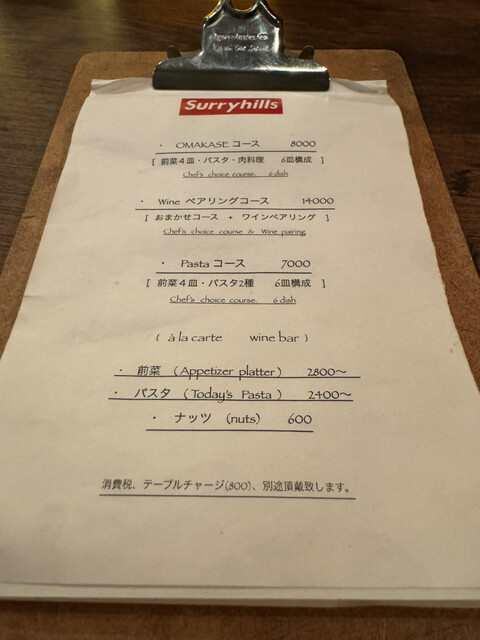 Surryhills
・ OMAKASE コース 8000
[ 前菜４皿・パスタ・肉料理 6皿構成 ]
Chef's choice course. 6 dish
・ Wine ペアリングコース 14000
[ おまかせコース + ワインペアリング ]
Chef's choice course & Wine pairing
・ Pasta コース 7000
[ 前菜４皿・パスタ2種 6皿構成 ]
Chef's choice course. 6 dish
( à la carte wine bar )
・ 前菜 (Appetizer platter) 2800〜
・ パスタ (Today's Pasta ) 2400〜
・ ナッツ (nuts) 600
消費税、テーブルチャージ(800)、別途頂戴致します。